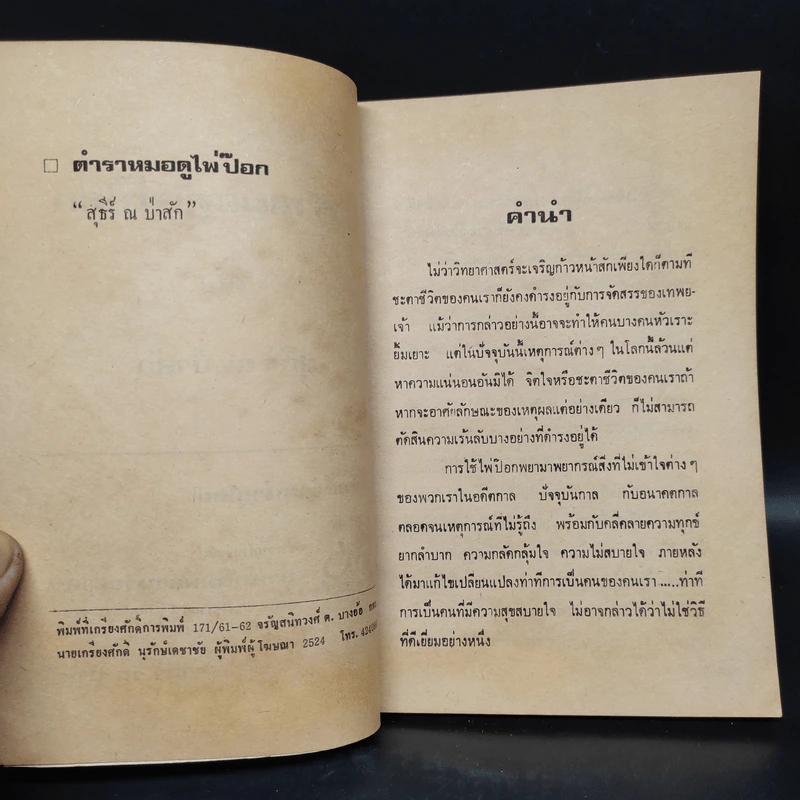 □ ตำราหมอดูไพ่ป๊อก
“สุธีร์ ณ ป่าสัก”
พิมพ์ที่เกรียงศักดิ์การพิมพ์ 171/61-62 จรัญสนิทวงศ์ ต. บางอ้อ
นายเกรียงศักดิ์ นุรักษ์เดชาชัย ผู้พิมพ์ผู้โฆษณา 2524 โทร.
คำนำ
ไม่ว่าวิทยาศาสตร์จะเจริญก้าวหน้าสักเพียงใดก็ตามที
ชะตาชีวิตของคนเราก็ยังคงดำรงอยู่กับการจัดสรรของเทพย-
เจ้า แม้ว่าการกล่าวอย่างนี้อาจจะทำให้คนบางคนหัวเราะ
ยิ้มเยาะ แต่ในปัจจุบันนี้เหตุการณ์ต่าง ๆ ในโลกนี้ล้วนแต่
หาความแน่นอนอันมิได้ จิตใจหรือชะตาชีวิตของคนเราถ้า
หากจะอาศัยลักษณะของเหตุผลแต่อย่างเดียว ก็ไม่สามารถ
ตัดสินความเร้นลับบางอย่างที่ดำรงอยู่ได้
การใช้ไพ่ป๊อกพยามาพยากรณ์สิ่งที่ไม่เข้าใจต่าง ๆ
ของพวกเราในอดีตกาล ปัจจุบันกาล กับอนาคตกาล
ตลอดจนเหตุการณ์ที่ไม่รู้ถึง พร้อมกับคลี่คลายความทุกข์
ยากลำบาก ความกลัดกลุ้มใจ ความไม่สบายใจ ภายหลัง
ได้มาแก้ไขเปลี่ยนแปลงท่าทีการเป็นคนของคนเรา .....ท่าที
การเป็นคนที่มีความสุขสบายใจ ไม่อาจกล่าวได้ว่าไม่ใช่วิธี
ที่ดีเยี่ยมอย่างหนึ่ง